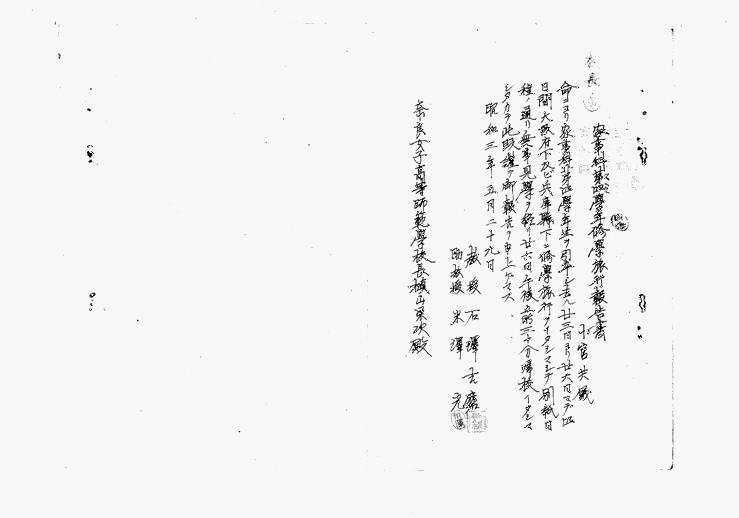 校長
家事科第四學年修學旅行報告書
命ニヨリ家事科第四學年生ヲ引率シ去ル廿三日ヨリ廿六日マデ四
日間大阪府下及ビ兵庫縣下ニ修學旅行ヲイタシマシテ別紙日
程ノ通リ無事見學ヲ終リ廿六日午後五時三十分歸校イタシマ
シタカラ此段謹デ御報告申上ゲマス
昭和三年五月二十九日
教授 石澤吉麿
助教授 米澤光
奈良女子高等師範學校長槇山栄次殿